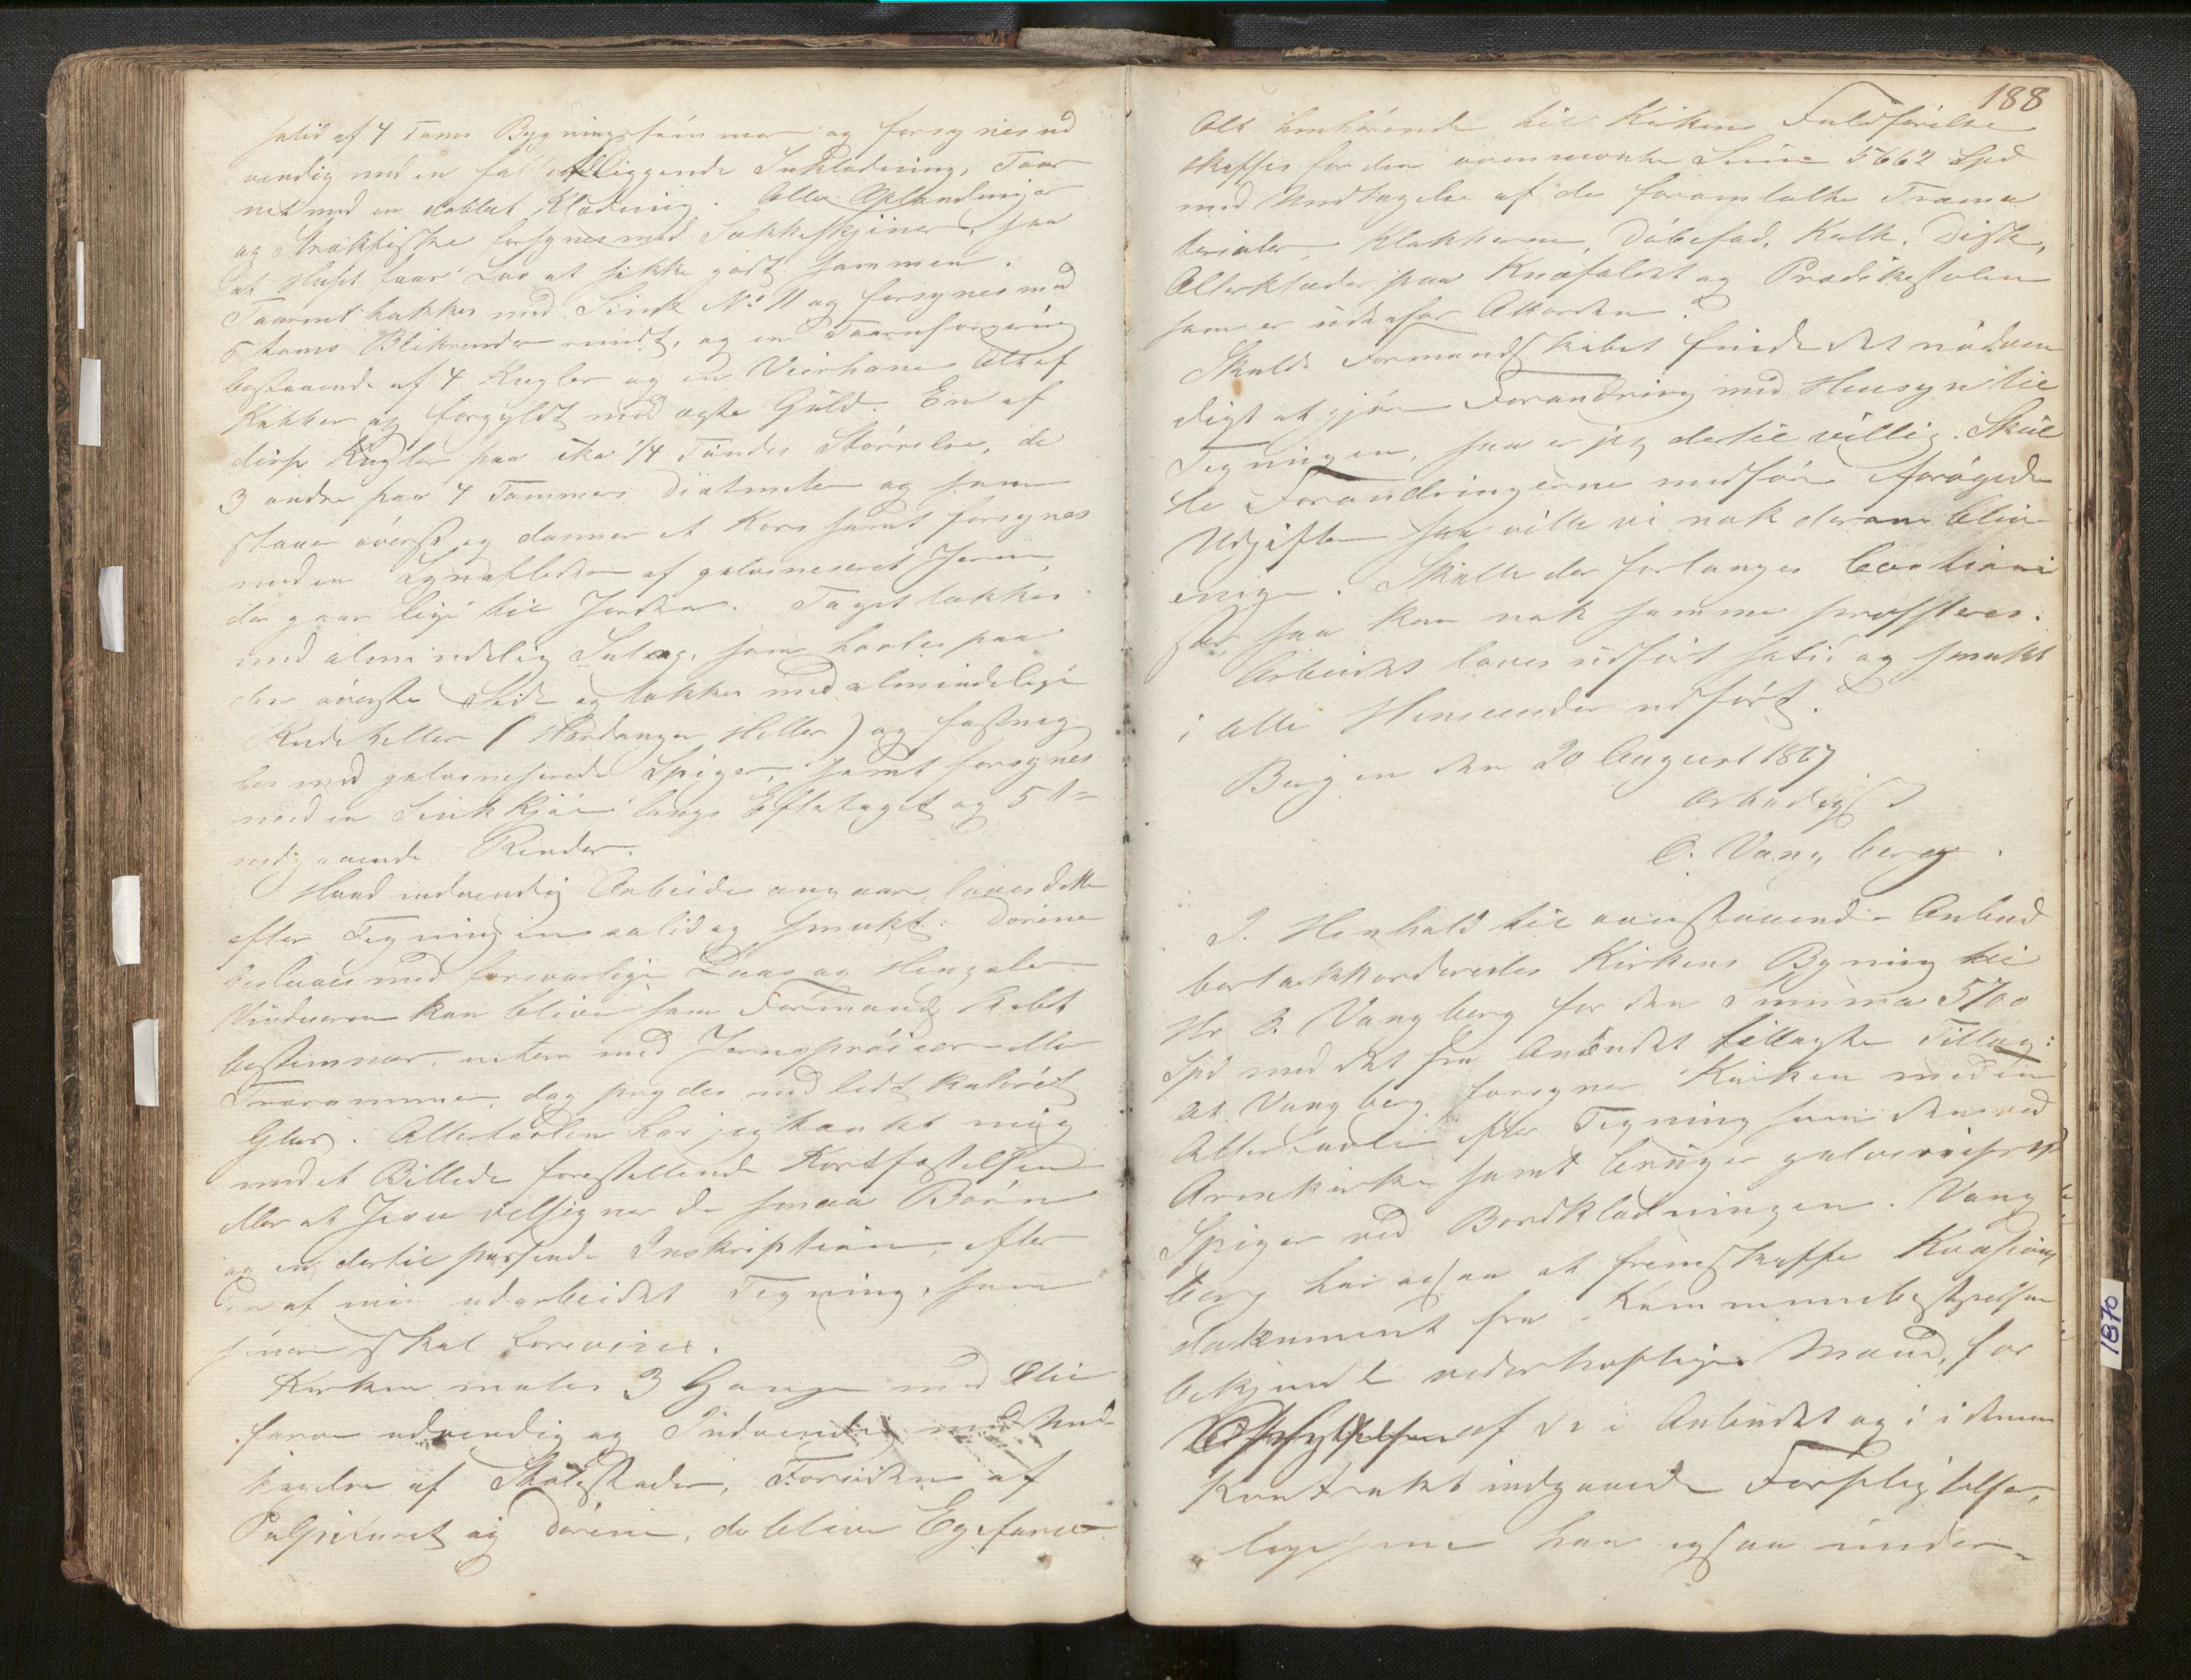 solid af 4 Toms Bygningstømmer og forsynes ud
vendig med en falliggende Inklædning, Taar
net med en dobbelt Klædning. Alle
og forsynes med saa
at Huset faar Lov at sikke godt sammen.
Taarnet tækkes med Sink No 11 og forsynes med
5 toms Blikrender rundt, og en Taarn
bestaaende af 4 Kugler og en Veirhane Alt af
Kobber og forgyldt med ægte Guld. En af
disse Kugler paa cika 1/4 Tøndes Størrelse, de
3 andre paa 4 Tommers Diameter og som
staaer øverst og danner et Kors samt forsynes
med en Lynafleder af galvaniseret Jern,
der gaar lige til Jorden. Taget tækkes
med almindelig Sutag, som høvles paa
den øverste Side og tækkes med almindelige
Rudeheller (Hardanger Heller) og fastnag
les med galvaniserede Spiger, samt forsynes
med en Sink langs Eftertaget og 5 t=
nedgaaende Render.
Hvad indvendig Arbeide angaar, laves dette
efter Tegningen solid og smukt. Dørene
beslaaes med forsvarlige Laase og Hengsler
Vinduerne kan blive som Formandskabet
bestemmer, enten med Jernsprosser eller
Trærammer, dog prydes med lidt kulørt
Glas. Altertavlen har jeg tænkt mig
med et Billede forestillende Korsfæstelsen
eller at Jesu velsigner de smaa Børn
og en dertil passende Inskription, efter
en af mig udarbeidet Tegning, som
senere skal forevises.
Kirken males 3 Gange med Olie
farve udvendig og Indvendig med Und-
tagelse af Stolestader, Forsiden af
Pulpituret og Dørene, de blive Egefarve
188
Alt henhørende til Kirkens Fuldførelse
skaffes for den ovennævnte Sum 5662 Spd
med Undtagelse af de foromtalte Træma
terialer, Klokkerne, Døbefad, Kalk, Disk,
Alterklæder paa Knæfaldet og Prædikestolen
som er udenfor Akorden.
Skulde Formandskabet finde det nødven
digt at gjøre Forandring med Hensyn til
Tegningen, saa er jeg dertil villig. Skul
de Forandringerne medføre forøgede
Udgifter saa ville vi nok derom blive
enige. Skulle der forlanges Cautioni
ster, saa kan nok samme præsteres.
Arbeidet loves udført solid og smukt
i alle Henseender udført.
Bergen den 20 August 1867
Ærbødigst
O. Vangberg.
I Henhold til ovenstaaende Anbud
bortakkorderedes Kirkens Bygning til
Hr O. Vangberg for den Summa 5700
Spd med det fra Anbudet tillagte Tillæg:
at Vangberg forsyner Kirken med en
Altertavle efter Tegning som den ved
Arnekirke samt bruger galvaniseret
Spiger ved Bordklædningen. Vang
berg har ogsaa at fremskaffe Kautions
dokument fra Kommunebestyrelsen
bekjendte vederhæftige Mænd, for
Opfyldelsen af de i Anbudet og i denne
Kontrakt indgaaede Forpligtelser,
ligesom han ogsaa under-
1870